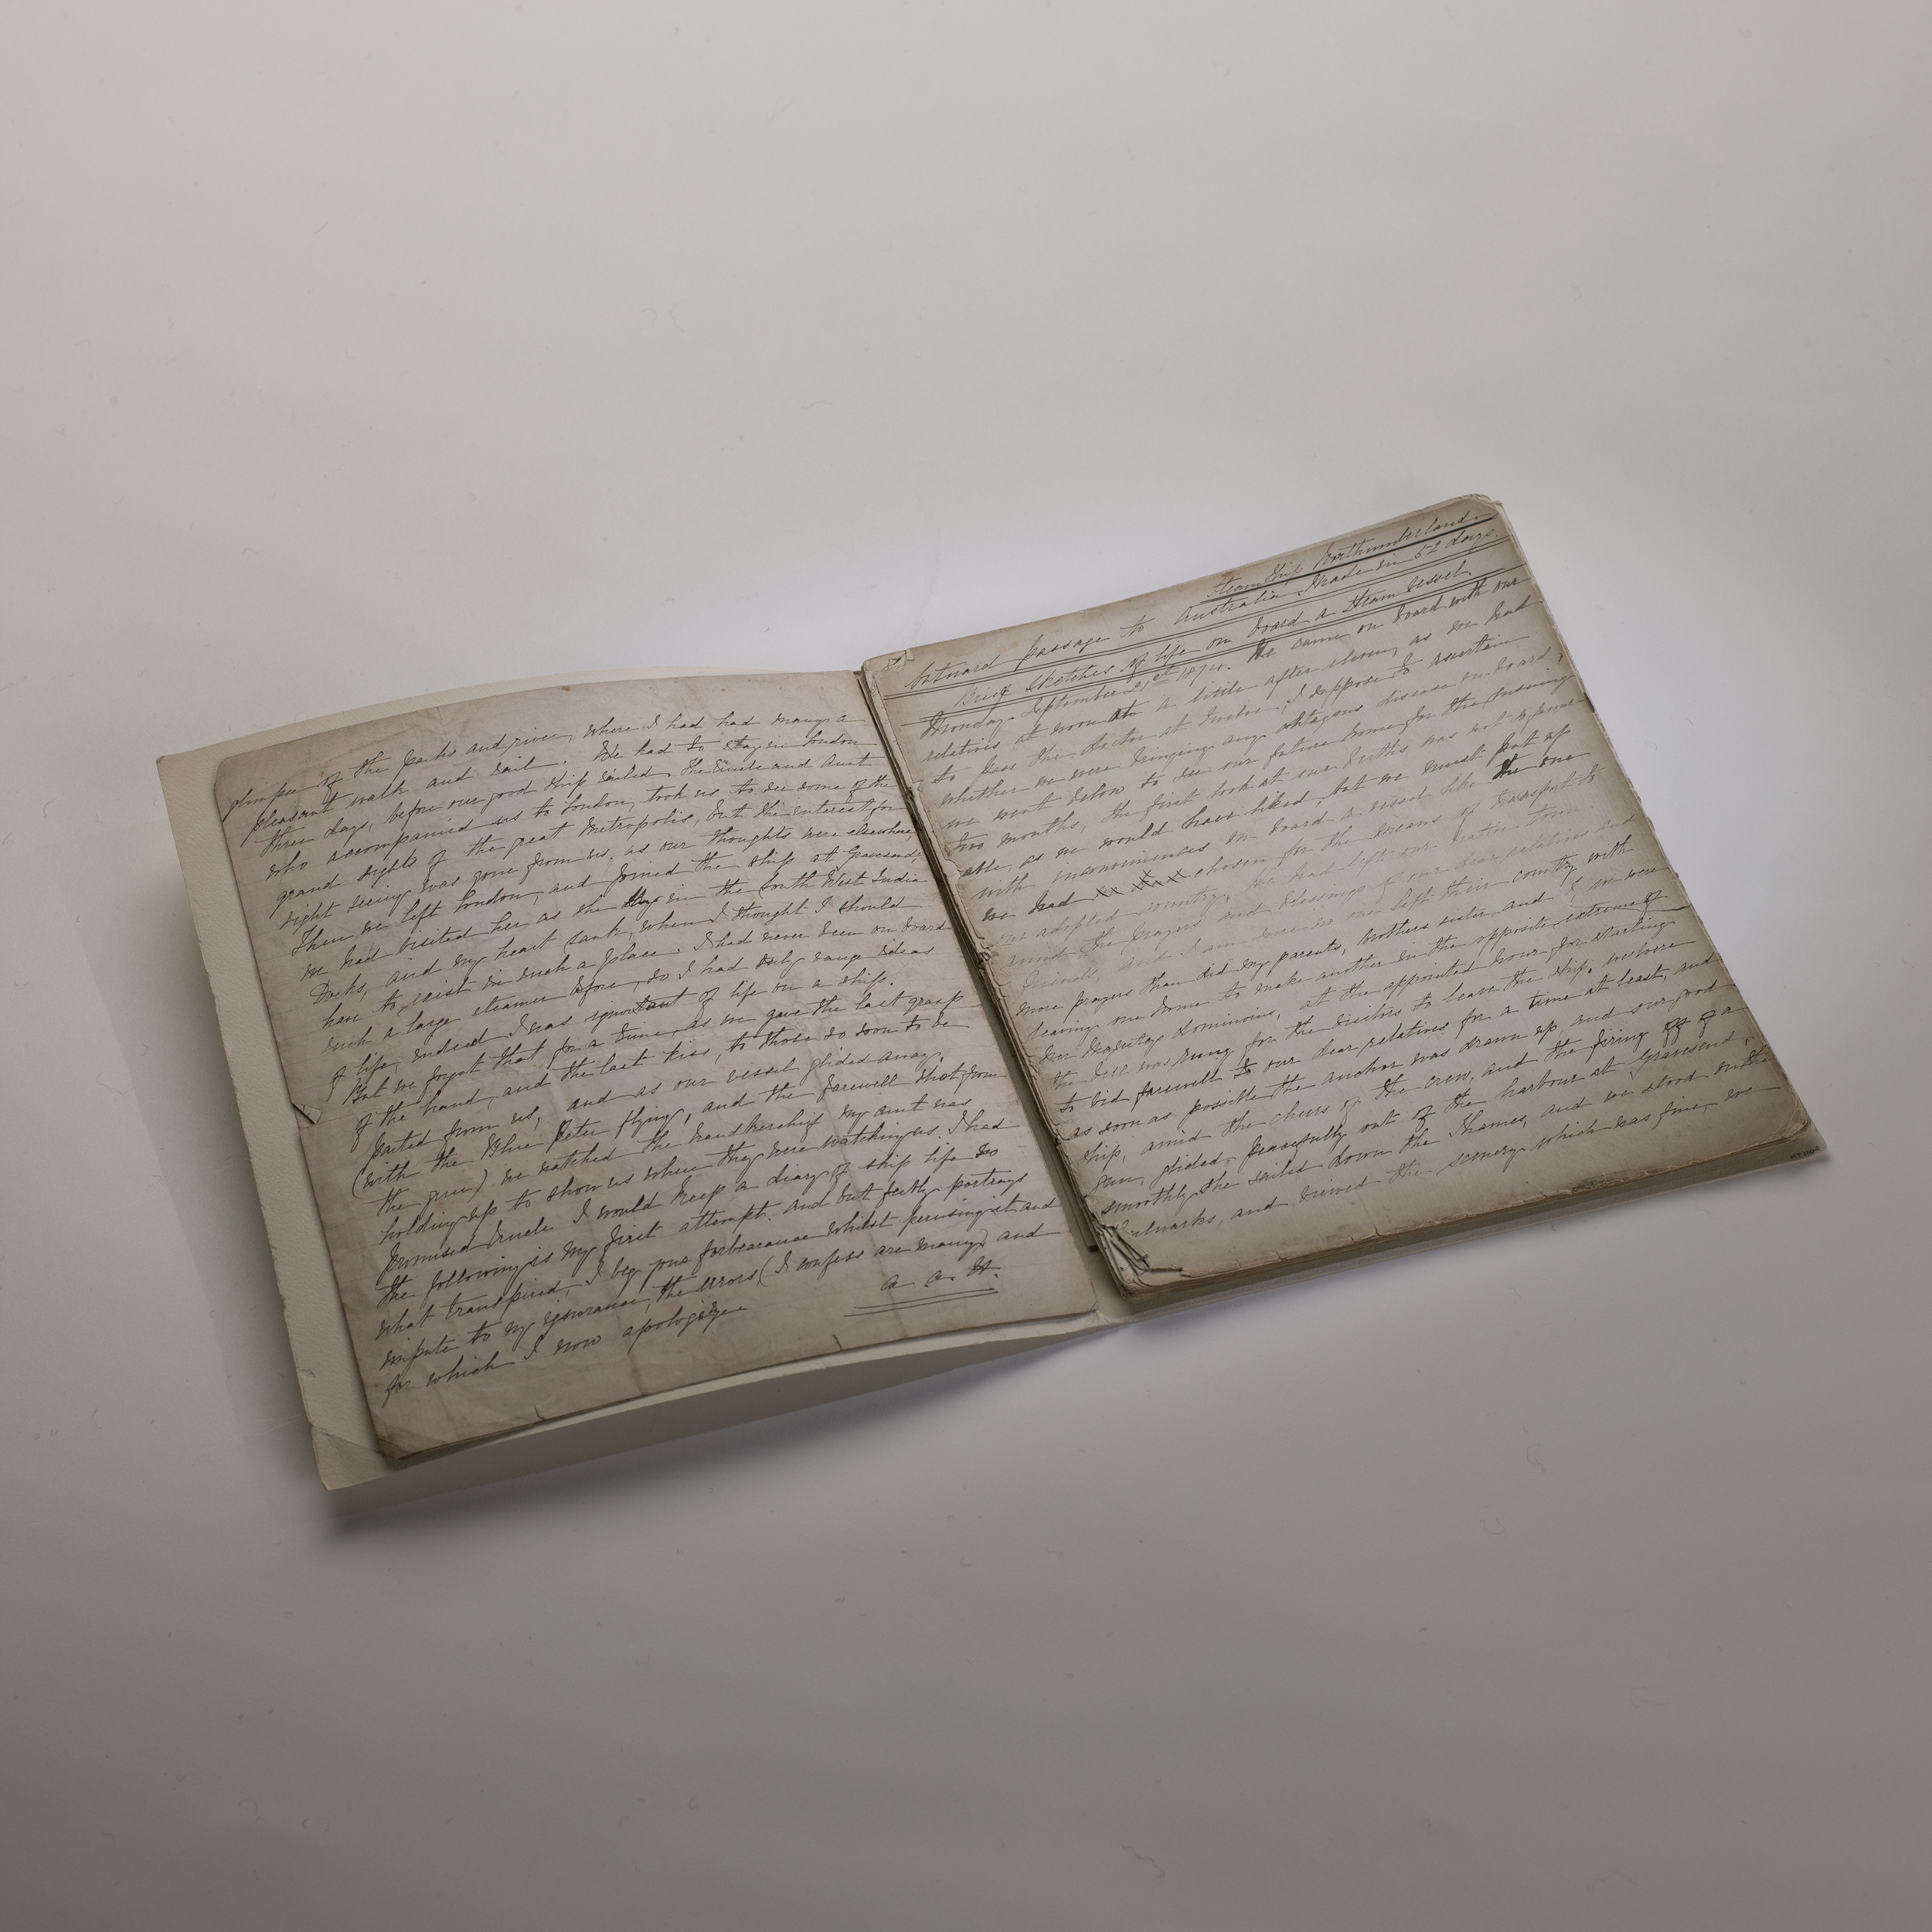 glimpse of the parks and river, where I had had many a
pleasant walk and sail. We had to stay in London
three days, before our good ship sailed. The Uncle and Aunt
who accompanied us to London, took us to see some of the
grand sights of the great Metropolis, but the interest for
sight seeing was gone from us, as our thoughts were elsewhere,
Then we left London, and joined the ship at Gravesend,
we had visited her as she lay in the South West India
Docks, and my heart sank, when I thought I should
have to, exist in such a place. I had never been on board
such a large steamer before, so I had only vague ideas
of life, indeed I was ignorant of life on a ship.
But we forgot that for a time, as we gave the last grasp
of the hand, and the last kiss, to those so soon to be
parted from us, and as our vessel glided away,
(with the Blue Peter flying, and the farewell shot from
the gun) we watched the handkerchief my aunt was
holding up to show us where they were watching us. I had
promised Uncle I would keep a diary of ship life so
the following is my first attempt. and but feebly portrays
what transpired, I beg your forbearance whilst perusing it and
impute to my ignorance, the errors (I confess are many) and
for which I now apologize
A. A. H.
Steam Ship Northumberland.
Outward passage to Australia. Made in 52 days.
Brief sketches of life on board a steam vessel.
Monday September 21st 1874. We came on board with our
relatives at noon a little after eleven, as we had
to pass the doctor at twelve, I suppose to ascertain
whether we were bringing any contagious disease on board,
we went below to see our future home for the ensuing
two months, the first look at our berths was not so favor-
able, as we would have liked, but we must put up
with inconveniences on board a vessel like the one
we had xx xxx chosen for the means of transport to
our adopted country. We had left our native town
amid the prayers and blessings of our dear relatives and
friends, and I am sure no one left their country with
more prayers than did my parents, brothers sister, and I, we were
leaving one home to make another in the opposite extreme of
Her Majestys Dominions, at the appointed hour for starting
the bell was rung for the visitors to leave the ship, we have
to bid farewell to our dear relatives for a time at least, and
as soon as possible the anchor was drawn up, and our good
ship, amid the cheers of the crew, and the firing off of a
gun, glided, peacefully out of the harbour at Gravesend,
smoothly she sailed down the Thames, and we stood on the
bulwarks, and viewed the scenery which was fine, we